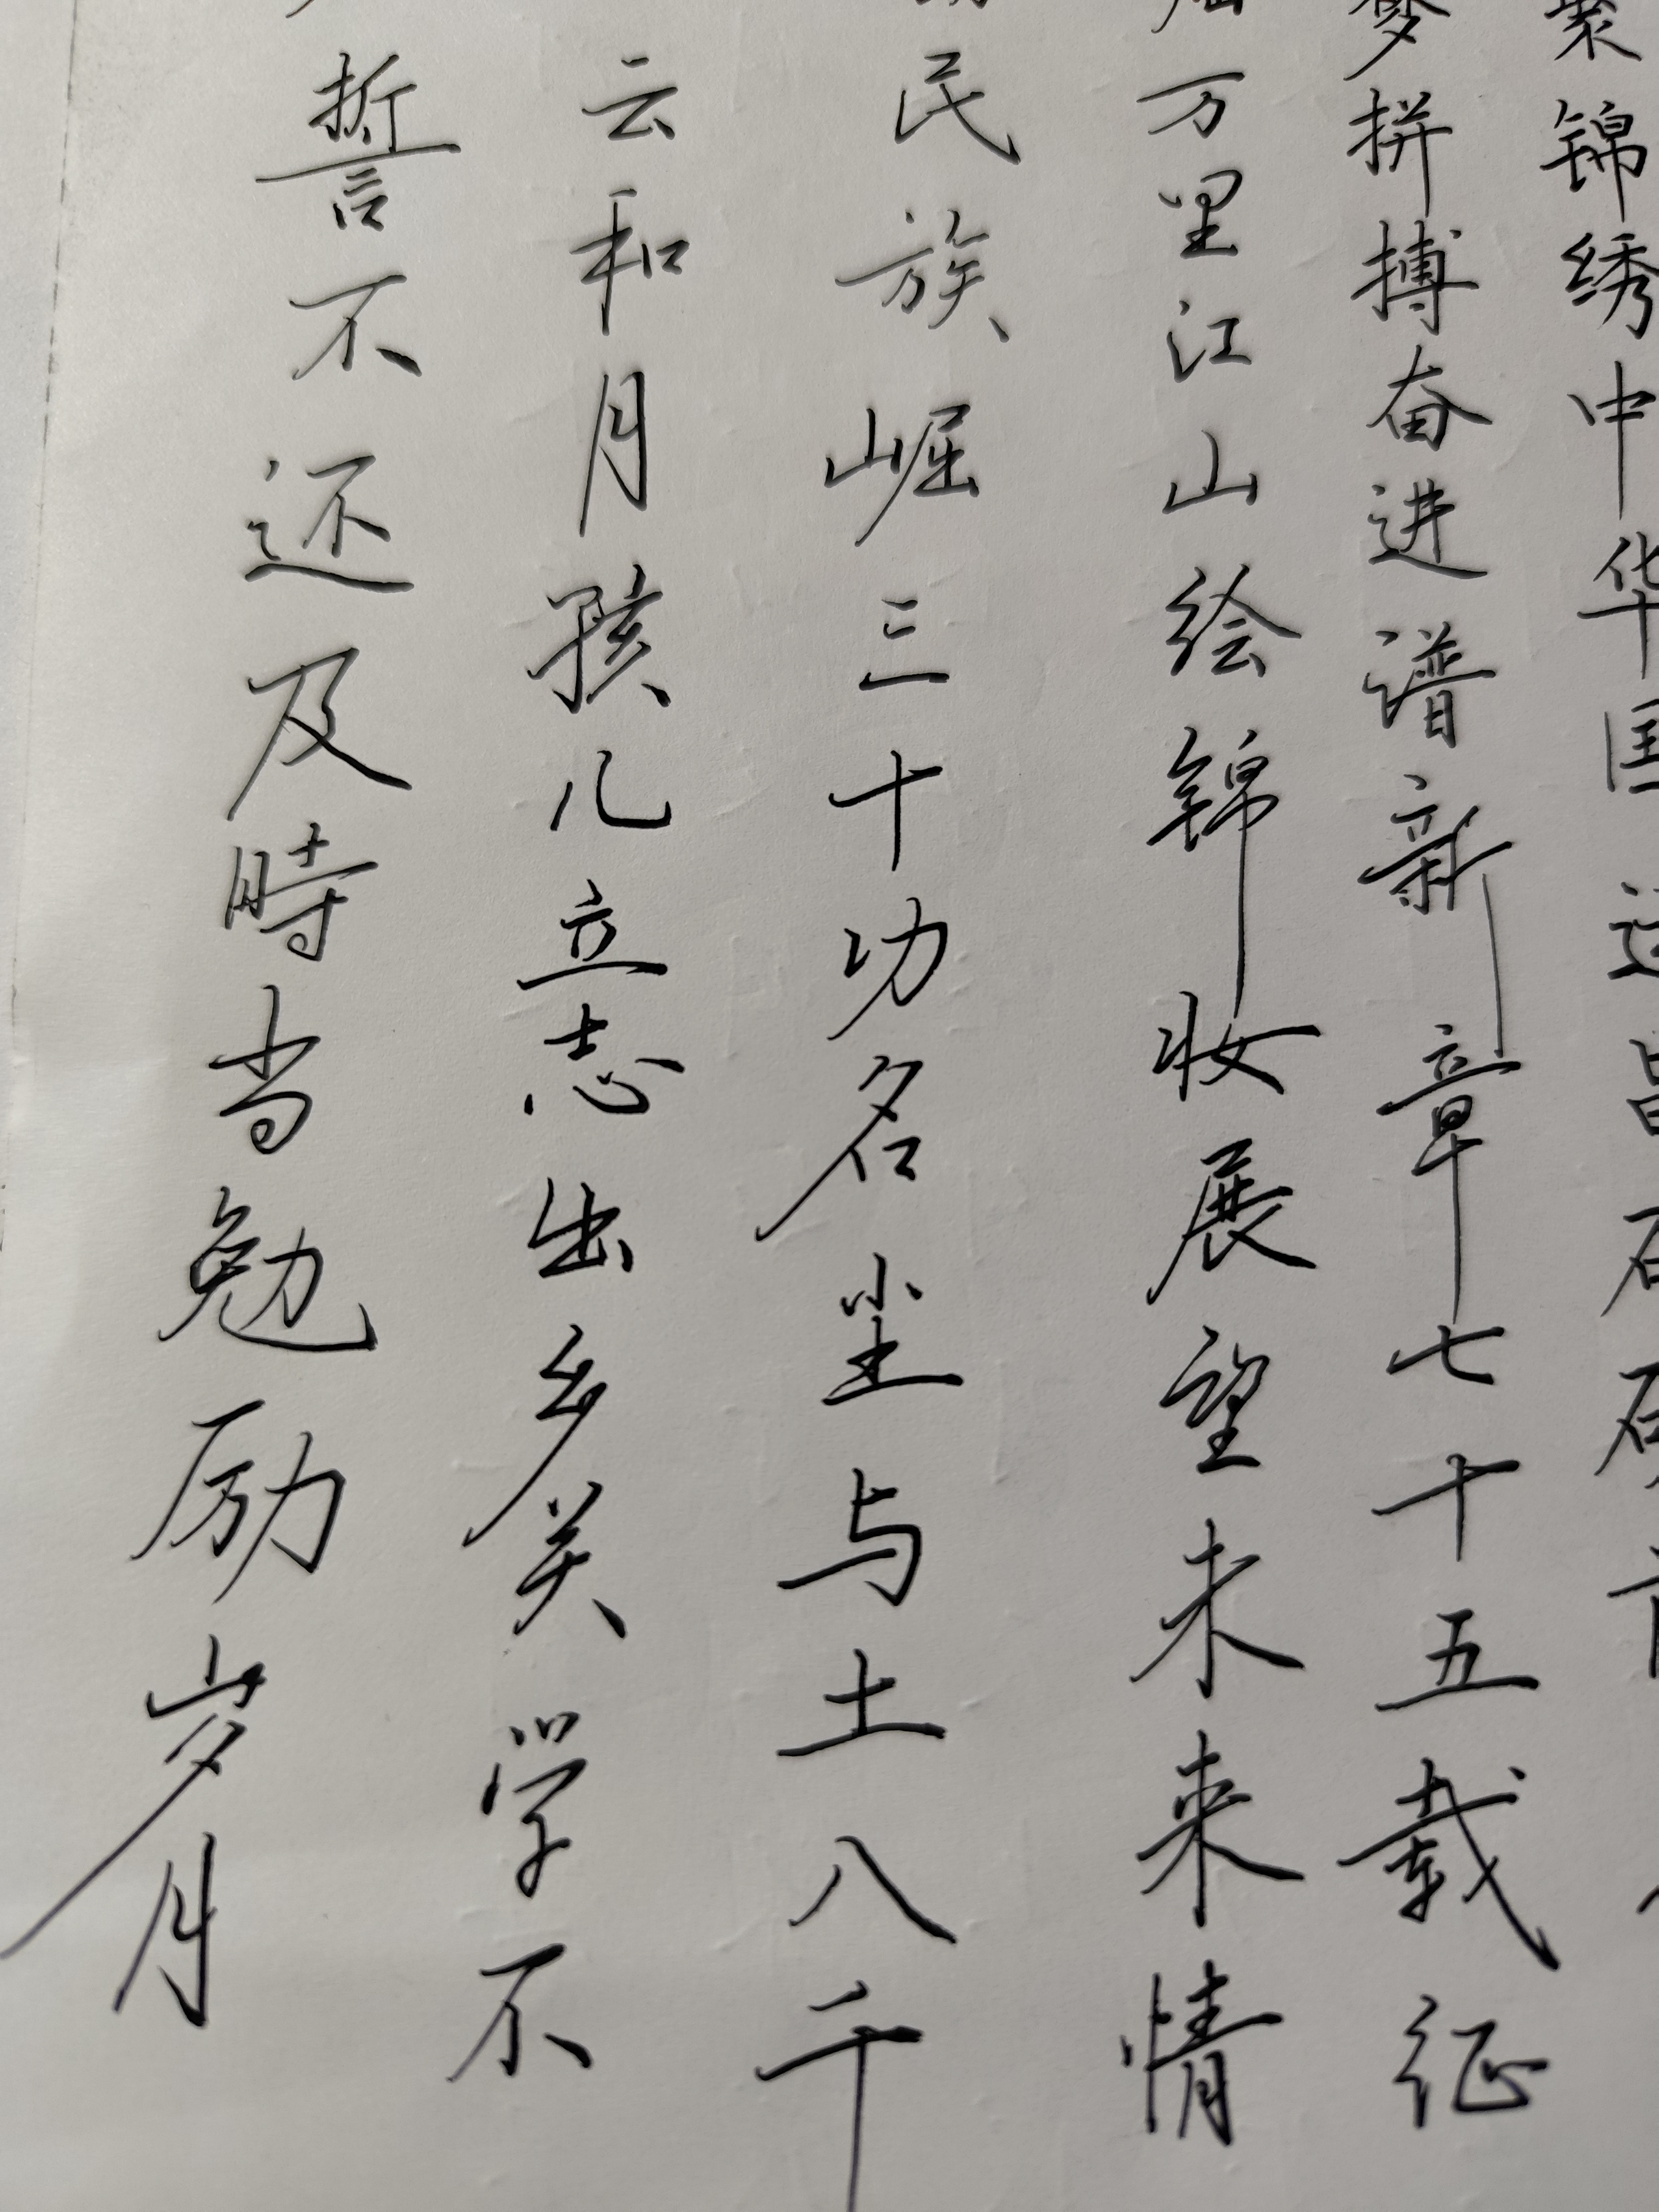 锦绣中华国运昌石
梦拼搏奋进谱新章七十五载征
万里江山绘锦妆展望未来情
民族崛三十功名尘与土八千
云和月孩儿立志出乡关学不
誓不还及時当勉励岁月